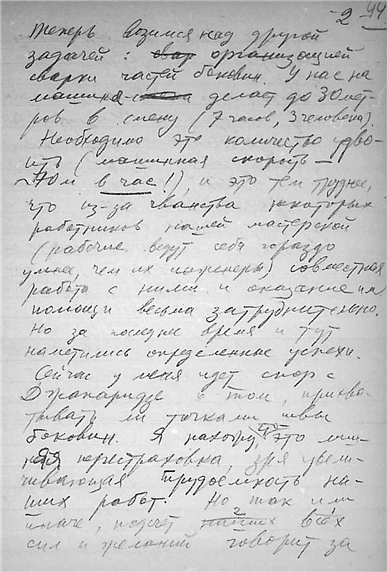 -2- 44
теперь возимся над другой
задачей: организацией
сварки частей боковин. У нас на
машина делат до 30 мет-
ров в смену (7 часов, 3 человека).
Необходимо это количество удво-
ить (машинная скорость —
~70м в час!), и это тем труднее,
что из-за чванства некоторых
работников нашей мастерской
(рабочие ведут себя гораздо
умнее, чем их инженеры) совместная
работа с ними и оказание им
помощи весьма затруднительно.
Но за последнее время и тут
наметились определенные успехи.
Сейчас у меня идет спор с
Джапаридзе о том, прихва-
тывать ли точками швы
боковин. Я нахожу, что это лиш-
няя перестраховка, зря увели-
чивающая трудоемкость на-
ших работ. Но так или
иначе, подсчет наших всех
сил и желаний говорит за